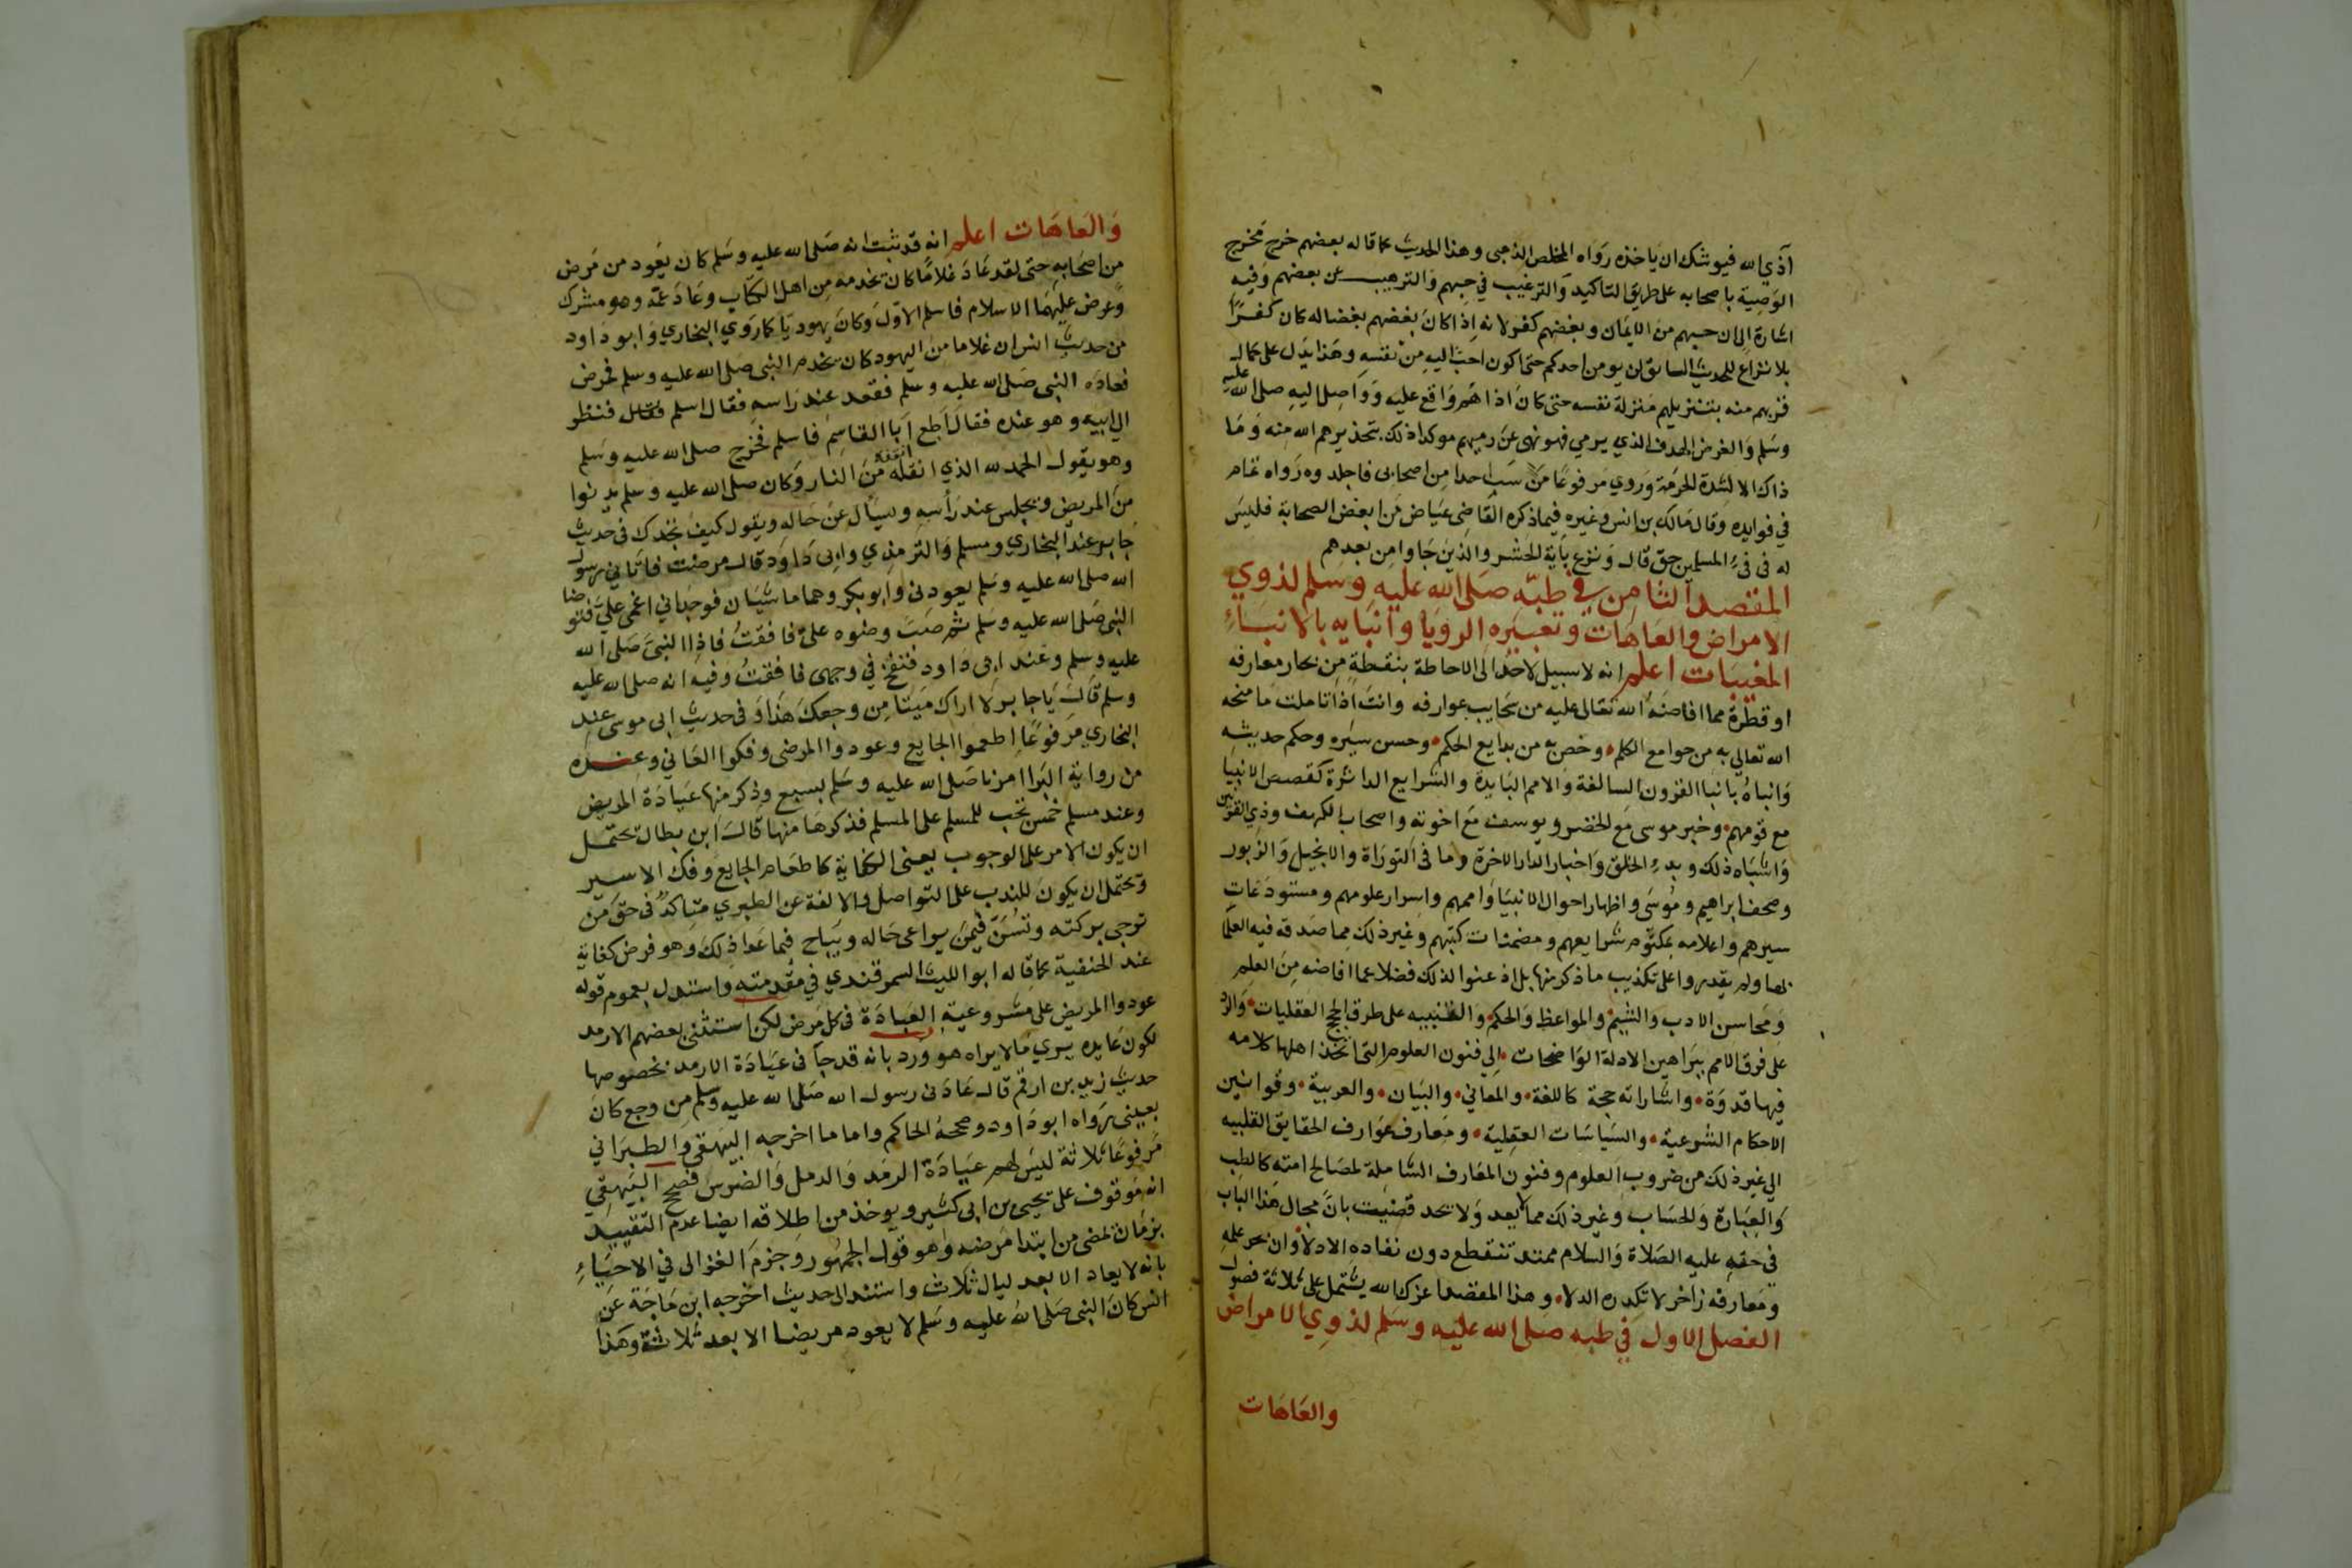 آذي الله فيوشك ان ياخذه رواه المخلص الذهبي وهذا الحديث كما قاله بعضهم خرج مخرج
الوصية باصحابه على طريق التاكيد والترغيب في حبهم والترهيب عن بعضهم وفيه
اشارة الى ان حبهم من الايمان وبغضهم كفر لانه اذا كان بغضهم بغضا له كان كفرا
بلا نزاع للحديث السابق لن يومن احدكم حتى اكون احب اليه من نفسه وهذا يدل على كمال
قربهم منه بتنزيلهم منزلة نفسه حتى كان اذاهم واقع عليه وواصل اليه صلى الله عليه
وسلم والغرض الهدف الذي يرمي فهو نهى عن رميهم موكدا ذلك بتحذيرهم الله منه وما
ذاك الا لشدة الحرمة وروي مرفوعا من سب احدا من اصحابي فاجلدوه رواه تمام
في فوايده وقال مالك بن انس وغيره فيما ذكره القاضي عياض من ابغض الصحابة فليس
له في فيء المسلمين حق قال ونزع باية الحشر والذين جاوا من بعدهم
المقصد الثامن في طبه صلى الله عليه وسلم لذوي
الامراض والعاهات وتعبيره الرويا وانبايه بالانباء
المغيبات اعلم انه لا سبيل لاحد الى الاحاطة بنقطة من بحار معارفه
او قطرة مما افاضه الله تعالى عليه من سحايب عوارفه وانت اذا تاملت ما منحه
الله تعالى به من جوامع الكلم وخصه به من بدايع الحكم وحسن سيره وحكم حديثه
وانباه بانبا القرون السالفة والامم البايدة والشرايع الداثرة كقصص الانبيا
مع قومهم وخبر موسى مع الخضر ويوسف مع اخوته واصحاب الكهف وذي القرنين
واشباه ذلك وبدء الخلق واخبار الدار الاخرة وما في التوراة والانجيل والزبور
وصحف ابراهيم وموسى واظهار احوال الانبيا واممهم واسرار علومهم ومستودعات
سيرهم واعلامه بمكتوم شرايعهم ومضمنات كتبهم وغير ذلك مما صدقه فيه العلما
بها ولم يقدروا على تكذيب ما ذكر منها بل اذعنوا لذلك فضلا عما افاضه من العلم
ومحاسن الادب والشيم والمواعظ والحكم والتنبيه على طرق الحجج العقليات والرد
على فرق الامم ببراهين الادلة الواضحات الى فنون العلوم التي اتخذ اهلها كلامه
فيها قدوة واشاراته حجة كاللغة والمعاني والبيان والعربية وقوانين
الاحكام الشرعية والسياسات العقلية ومعارف عوارف الحقايق القلبيه
الى غير ذلك من ضروب العلوم وفنون المعارف الشاملة لمصالح امته كالطب
والعبارة والحساب وغير ذلك مما لا يعد ولا يحد قضيت بان مجال هذا الباب
في حقه عليه الصلاة والسلام ممتد تنقطع دون نفاده الادلا وان بحر علمه
ومعارفه زاخر لا تكدره الدلا وهذا المقصد اعزك الله يشتمل على ثلاثة فصول
الفصل الاول في طبه صلى الله عليه وسلم لذوي الامراض
والعاهات
والعاهات اعلم انه قد ثبت انه صلى الله عليه وسلم كان يعود من مرض
من اصحابه حتى لقد عاد غلاما كان يخدمه من اهل الكتاب وعاد عمه وهو مشرك
وعرض عليهما الاسلام فاسلم الاول وكان يهوديا كما روي البخاري وابو داود
من حديث انس ان غلاما من اليهود كان يخدم النبي صلى الله عليه وسلم فمرض
فعاده النبي صلى الله عليه وسلم فقعد عند راسه فقال اسلم فنظر
الى ابيه وهو عنده فقال اطع ابا القاسم فاسلم فخرج صلى الله عليه وسلم
وهو يقول الحمد لله الذي انقذه من النار وكان صلى الله عليه وسلم يدنوا
من المريض ويجلس عند رأسه ويسأل عن حاله ويقول كيف تجدك في حديث
جابر عند البخاري ومسلم والترمذي وابي داود قال مرضت فاتاني رسول
الله صلى الله عليه وسلم يعودني وابو بكر وهما ماشيان فوجداني اغمى علي فتوضا
النبي صلى الله عليه وسلم ثم صب وضوه علي فافقت فاذا النبي صلى الله
عليه وسلم وعند ابي داود فنفخ في وجهي فافقت وفيه انه صلى الله عليه
وسلم قال يا جابر لا اراك ميتا من وجعك هذا وفي حديث ابي موسى عند
البخاري مرفوعا اطعموا الجايع وعودوا المرضى وفكوا العاني وعنده
من رواية البرا امرنا صلى الله عليه وسلم بسبع وذكر منها عيادة المريض
وعند مسلم خمس تجب للمسلم على المسلم فذكرها منها قال ابن بطال يحتمل
ان يكون الامر على الوجوب يعني الكفاية كاطعام الجايع وفك الاسير
ويحتمل ان يكون للندب على التواصل والالفة عن الطبري متاكد في حق من
ترجى بركته وتسن فيمن يراعى حاله ويباح فيما عدا ذلك وهو فرض كفاية
عند الحنفية كما قاله ابو الليث السمرقندي في مقدمته واستدل بعموم قوله
عودوا المريض على مشروعية العيادة في كل مرض لكن استثنى بعضهم الارمد
لكون عايده يري ما لا يراه هو ورد بانه قد جا في عيادة الارمد بخصوصها
حديث زيد بن ارقم قال عادني رسول الله صلى الله عليه وسلم من وجع كان
بعيني رواه ابو داود وصححه الحاكم واما ما اخرجه البيهقي والطبراني
مرفوعا ثلاثة ليس لهم عيادة الرمد والدمل والضرس فصحح البيهقي
انه موقوف على يحيى بن ابي كثير ويوخذ من اطلاقه ايضا عدم التقييد
بزمان لمضى من ابتدا مرضه وهو قول الجمهور وجزم الغزالى في الاحياء
بانه لا يعاد الا بعد ليال ثلاث واستند الى حديث اخرجه ابن ماجة عن
انس كان النبي صلى الله عليه وسلم لا يعود مريضا الا بعد ثلاثة وهذا